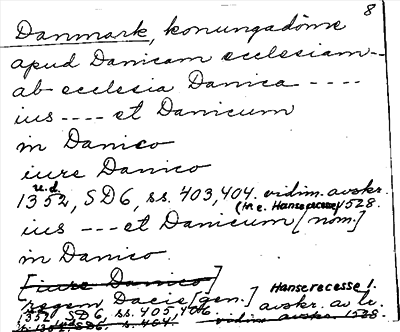 8
Danmark, konungadöme
apud Danicam ecclesiam --
ab ecclesia Danica ----
ius ---- et Danicum
in Danico
iure Danico
u.d.
1352, SD6, ss. 403, 404. vidim. avskr.
(in e. Hanserecesse) 1528.
ius --- et Danicum [nom.]
in Danico
[iure Danico]
regem Dacie [gen.]
Hanserecesse 1.
1352, SD6, ss. 405, 406
avskr. av
SD6, s. 404.
vidim. avskr. 1528.